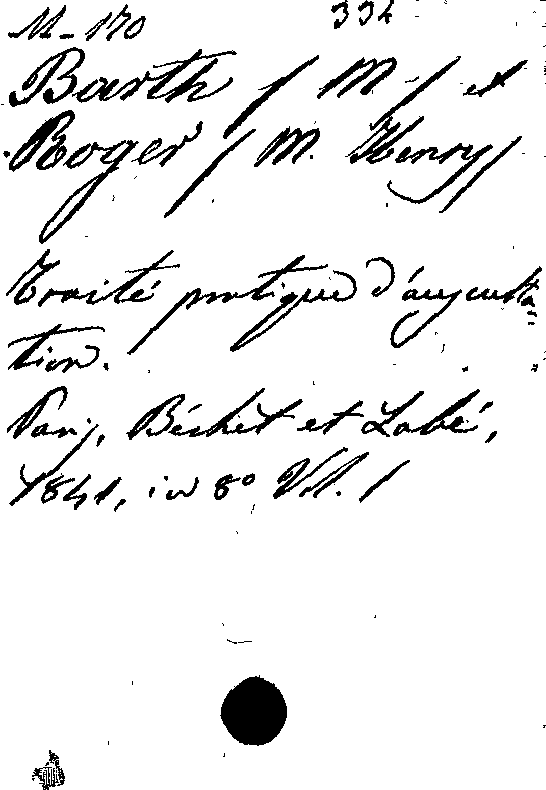 M-170 334
Barth / M-/ et
Roger / M. Henry/
Traité pratique d'auscultа-
tion.
Paris, Béchet et Labé,
1841, in 8° Vol. 1